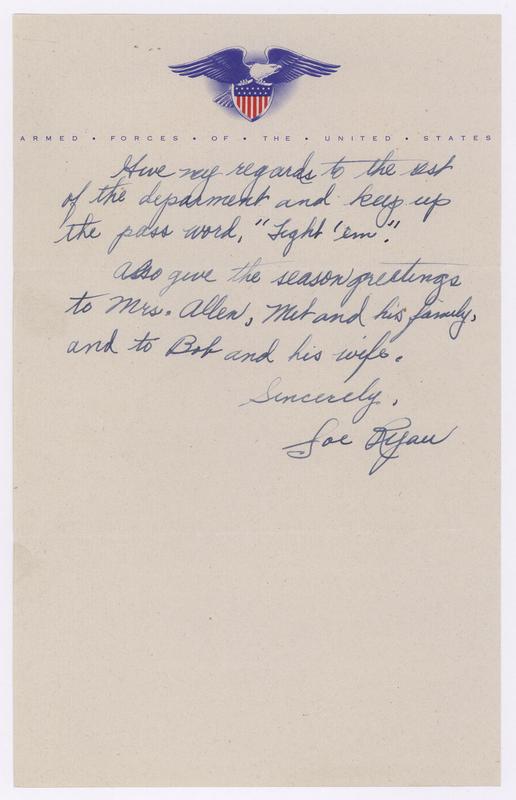 ARMED • FORCES • OF • THE • UNITED • STATES
Give my regards to the rest
of the deparment and keep up
the pass word, "Fight 'em".
Also give the season greetings
to Mrs. Allen, Met and his family,
and to Bob and his wife.
Sincerely,
Joe Ryan